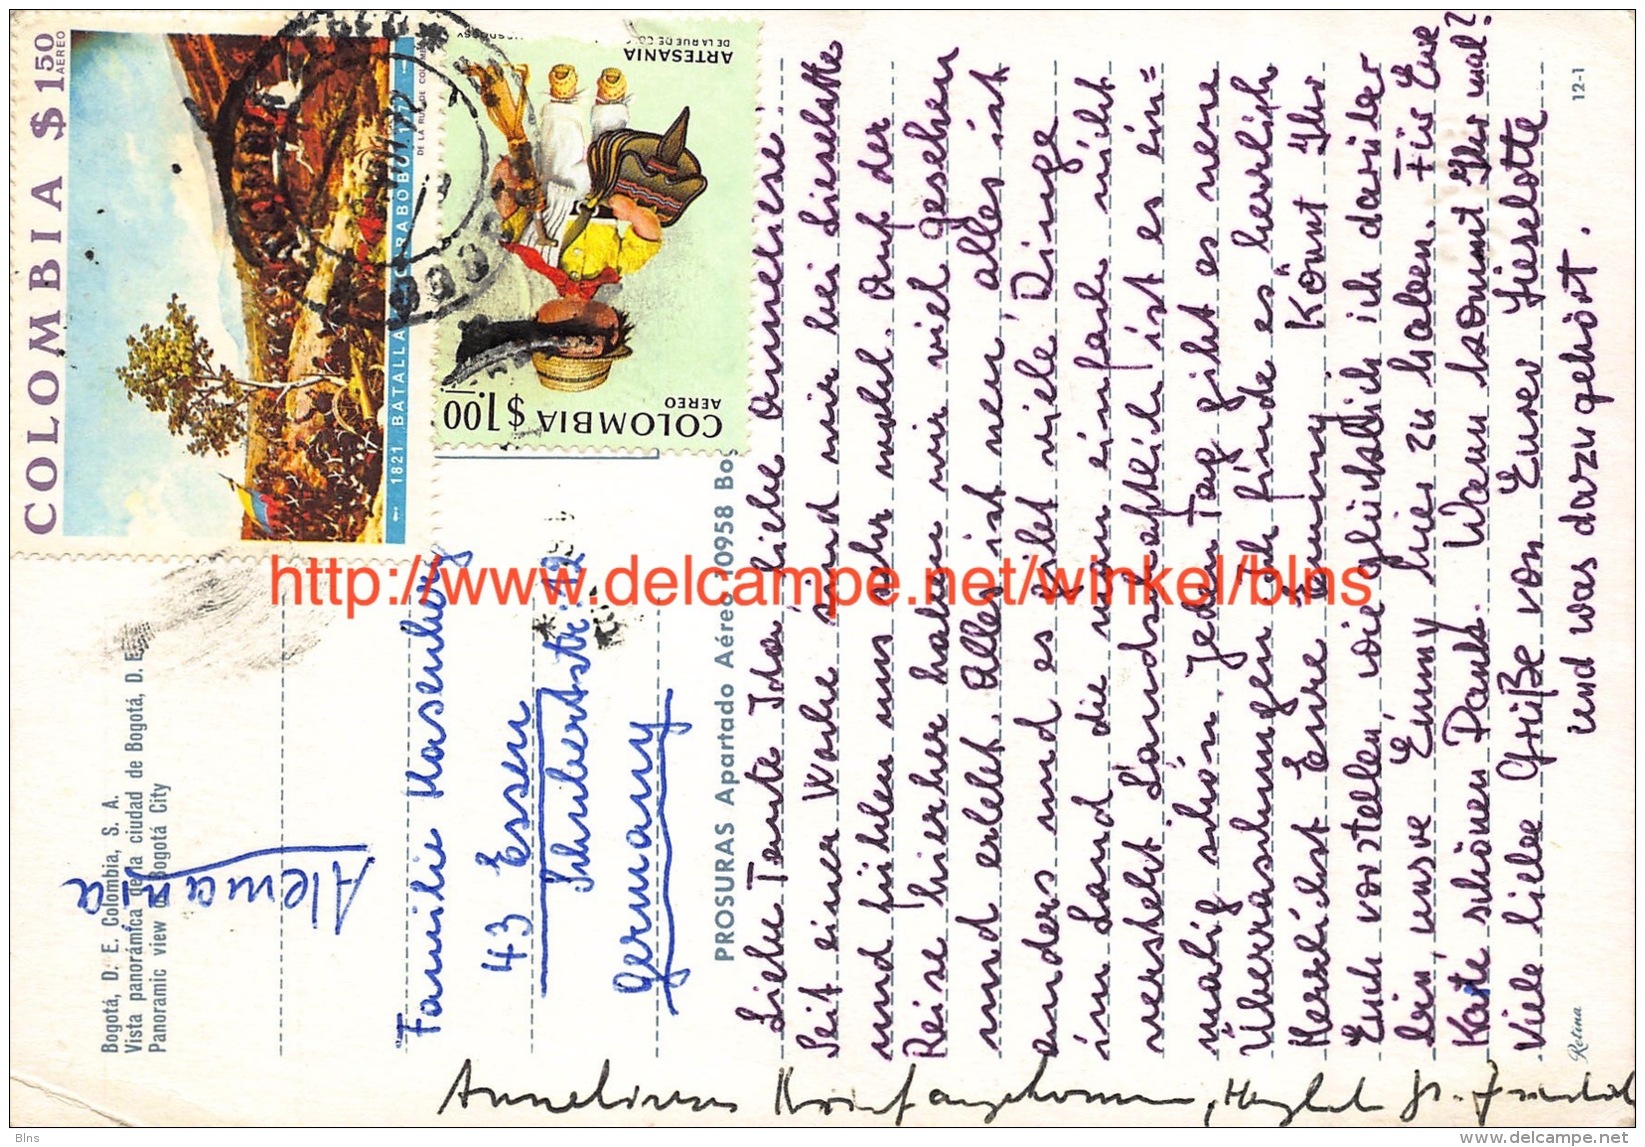 Bogotá, D. E. Colombia, S. A.
Vista panorámica de la ciudad de Bogotá, D. E.
Panoramic view of Bogotá City
Alemania
Familie Hasenberg
43 Essen
Schubertstr. 12
Germany
COLOMBIA $ 1.50
AEREO
1821 BATALLA CARABOBO 1971
DE LA RUE DE COLOMBIA
COLOMBIA $1.00
AEREO
ARTESANIA
DE LA RUE DE CO
BOGOTA
PROSURAS Apartado Aéreo 10958 Bog
Liebe Tante Ida, liebe Anneliese
Seit einer Woche sind wir bei Lieselotte
und fühlen uns sehr wohl. Auf der
Reise hierher haben wir viel gesehen
und erlebt. Alles ist neu, alles ist
anders und es gibt viele Dinge
im Land die man einfach nicht
versteht. Landschaftlich ist es ein=
malig schön. Jeden Tag gibt es neue
Überraschungen. Ich finde es herrlich
Herzlichst Eure Emmy. Könnt Ihr
Euch vorstellen wie glücklich ich darüber
bin, unsre Emmy hier zu haben. Für Eure
Karte schönen Dank. Wann kommt Ihr mal?
Viele liebe Grüße von Eurer Lieselotte
und was dazu gehört.
Anneliese Brief angekommen, Herzlich
Retina
12-1
http://www.delcampe.net/winkel/blns
Blns
http://www.delcampe.net